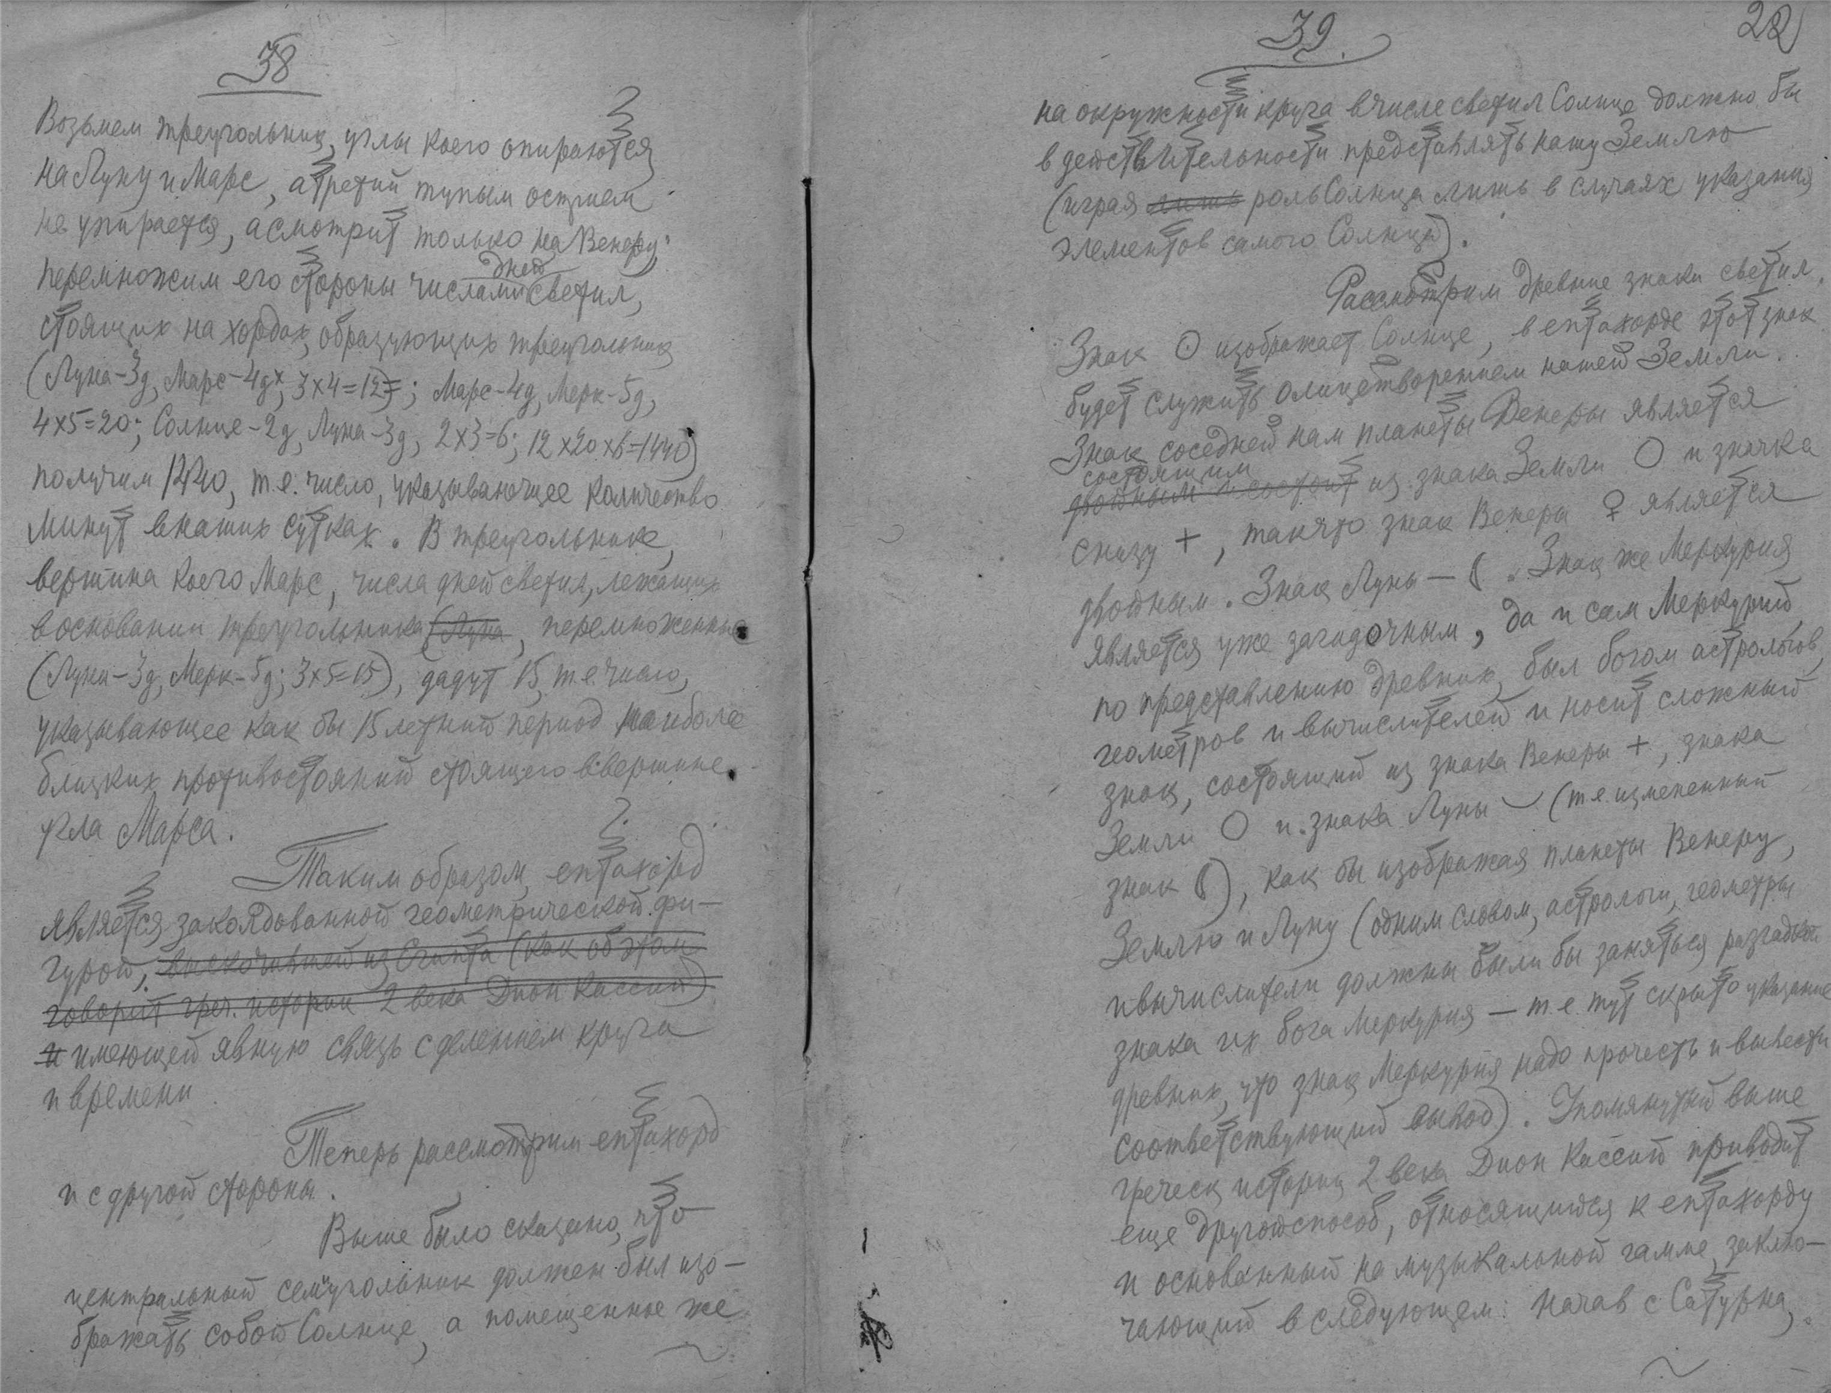 38
Возьмем треугольник, углы коего опираются
на Луну и Марс, а третий тупым острием
не упирается, а смотрит только на Венеру;
перемножим его стороны числами дней светил,
стоящих на хордах, образующих треугольник
(Луна-3д, Марс-4д, 3x4=12; Марс-4д, Мерк-5д,
4x5=20; Солнце-2д, Луна-3д, 2x3=6; 12x20x6=1440)
получим 1440, т.е. число, указывающее количество
минут в наших сутках. В треугольнике,
вершина коего Марс, числа дней светил, лежащих
в основании треугольника (Луна, перемноженные
(Луна-3д, Мерк-5д; 3x5=15), дадут 15, т.е. число,
указывающее как бы 15 летний период наиболе
близких противостояний стоящего в вершине
угла Марса.
Таким образом, ептахорд
является заколдованной геометрической фи-
гурой, выскочившей из Египта (как об этом
говорит греч. историк 2 века Дион Кассий)
и имеющей явную связь с делением круга
и времени
Теперь рассмотрим ептахорд
и с другой стороны.
Выше было сказано, что
центральный семиугольник должен был изо-
бражать собой Солнце, а помещенное же
39.
22
на окружности круга в числе светил Солнце должно бы
в действительности представлять нашу Землю
(играя лишь роль Солнца лишь в случаях указания
элементов самого Солнца).
Рассмотрим древние знаки светил.
Знак ☉ изображает Солнце, в ептахорде этот знак
будет служить олицетворением нашей Земли.
Знак соседней нам планеты Венеры является
состоящим
двойным и состоит из знака Земли ○ и значка
снизу +, так что знак Венеры ♀ является
двойным. Знак Луны — ☾. Знак же Меркурия
является уже загадочным, да и сам Меркурий
по представлению древних, был богом астрологов,
геометров и вычислителей и носит сложный
знак, состоящий из знака Венеры +, знака
Земли ○ и знака Луны ⌣ (т.е. измененный
знак ☾), как бы изображая планеты Венеру,
Землю и Луну (одним словом, астрологи, геометры
и вычислители должны были бы заняться разгадкой
знака их бога Меркурия — т.е. тут скрыто указание
древних, что знак Меркурия надо прочесть и вывести
соответствующий вывод). Упомянутый выше
греческ историк 2 века Дион Кассий приводит
еще другой способ, относящийся к ептахорду
и основанный на музыкальной гамме, заклю-
чающий в следующем: начав с Сатурна,